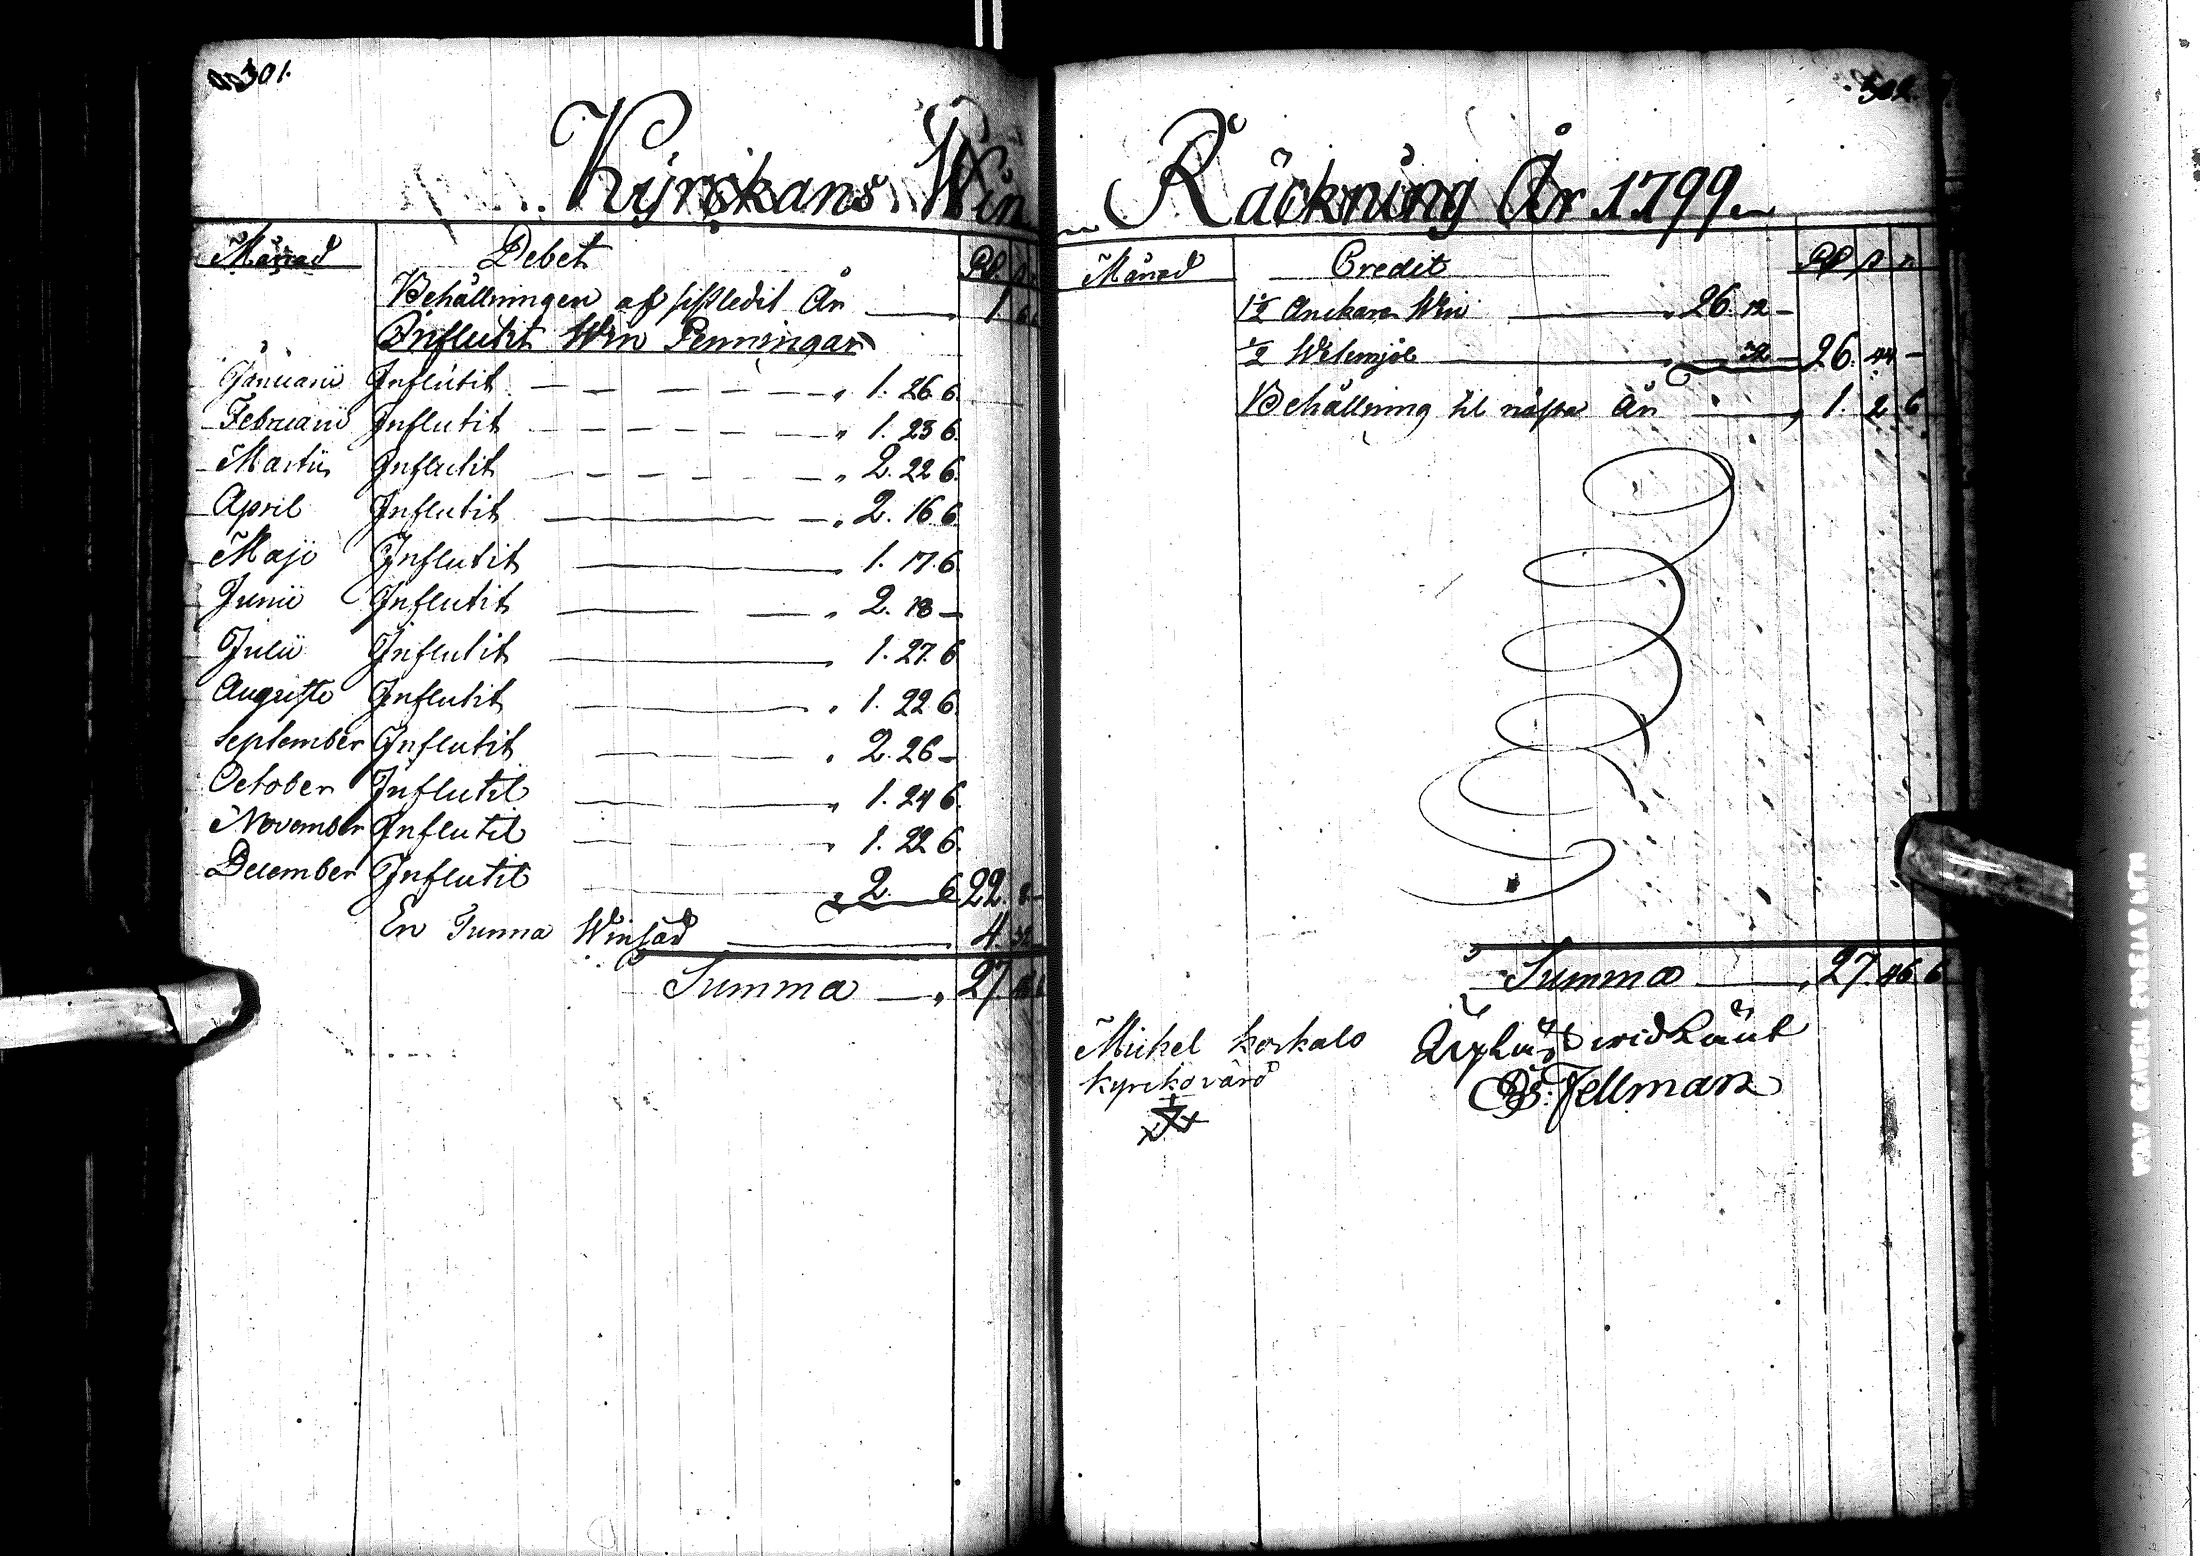 301.
Kyrckans Win
Månad Debet Rd. s r
Behållningen af sistledit År 1. 6.
Influtit Win Penningar
Januarii Influtit 1. 26 6.
Februarii Influtit 1. 23 6.
Martii Influtit 2. 22 6.
April Influtit 2. 16 6.
Maji Influtit 1. 17. 6.
Junii Influtit 2. 18 –
Julii Influtit 1. 27. 6
Augusti Influtit 1. 22 6.
September Influtit 2. 26 –
October Influtit 1. 24 6.
November Influtit 1. 22 6.
December Influtit 2. 6 22. 8 –
En Tunna Winsäd 4. 32
Summa 27.
302.
Räckning År 1799.
Månad Credit Rd s r
1/2 Anckare Win 26. 12 –
1/2 Wetemjöl 32 – 26. 44 –
Behållning til nästa År 1. 2 6
Summa 27. 46. 6
Michel Korkalo
kyrckovärd
Fellman